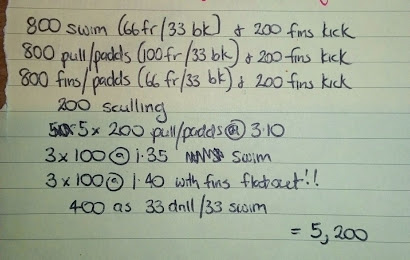 800 swim (66fr/33 bk) & 200 fins kick
800 pull/padds (100fr/33 bk) & 200 fins kick
800 fins/padds (66 fr/33 bk) & 200 fins kick
200 sculling
5 x 200 pull/padds @ 3.10
3 x 100 @ 1.35 swim
3 x 100 @ 1.40 with fins flat out!!
400 as 33 drill/33 swim
= 5,200